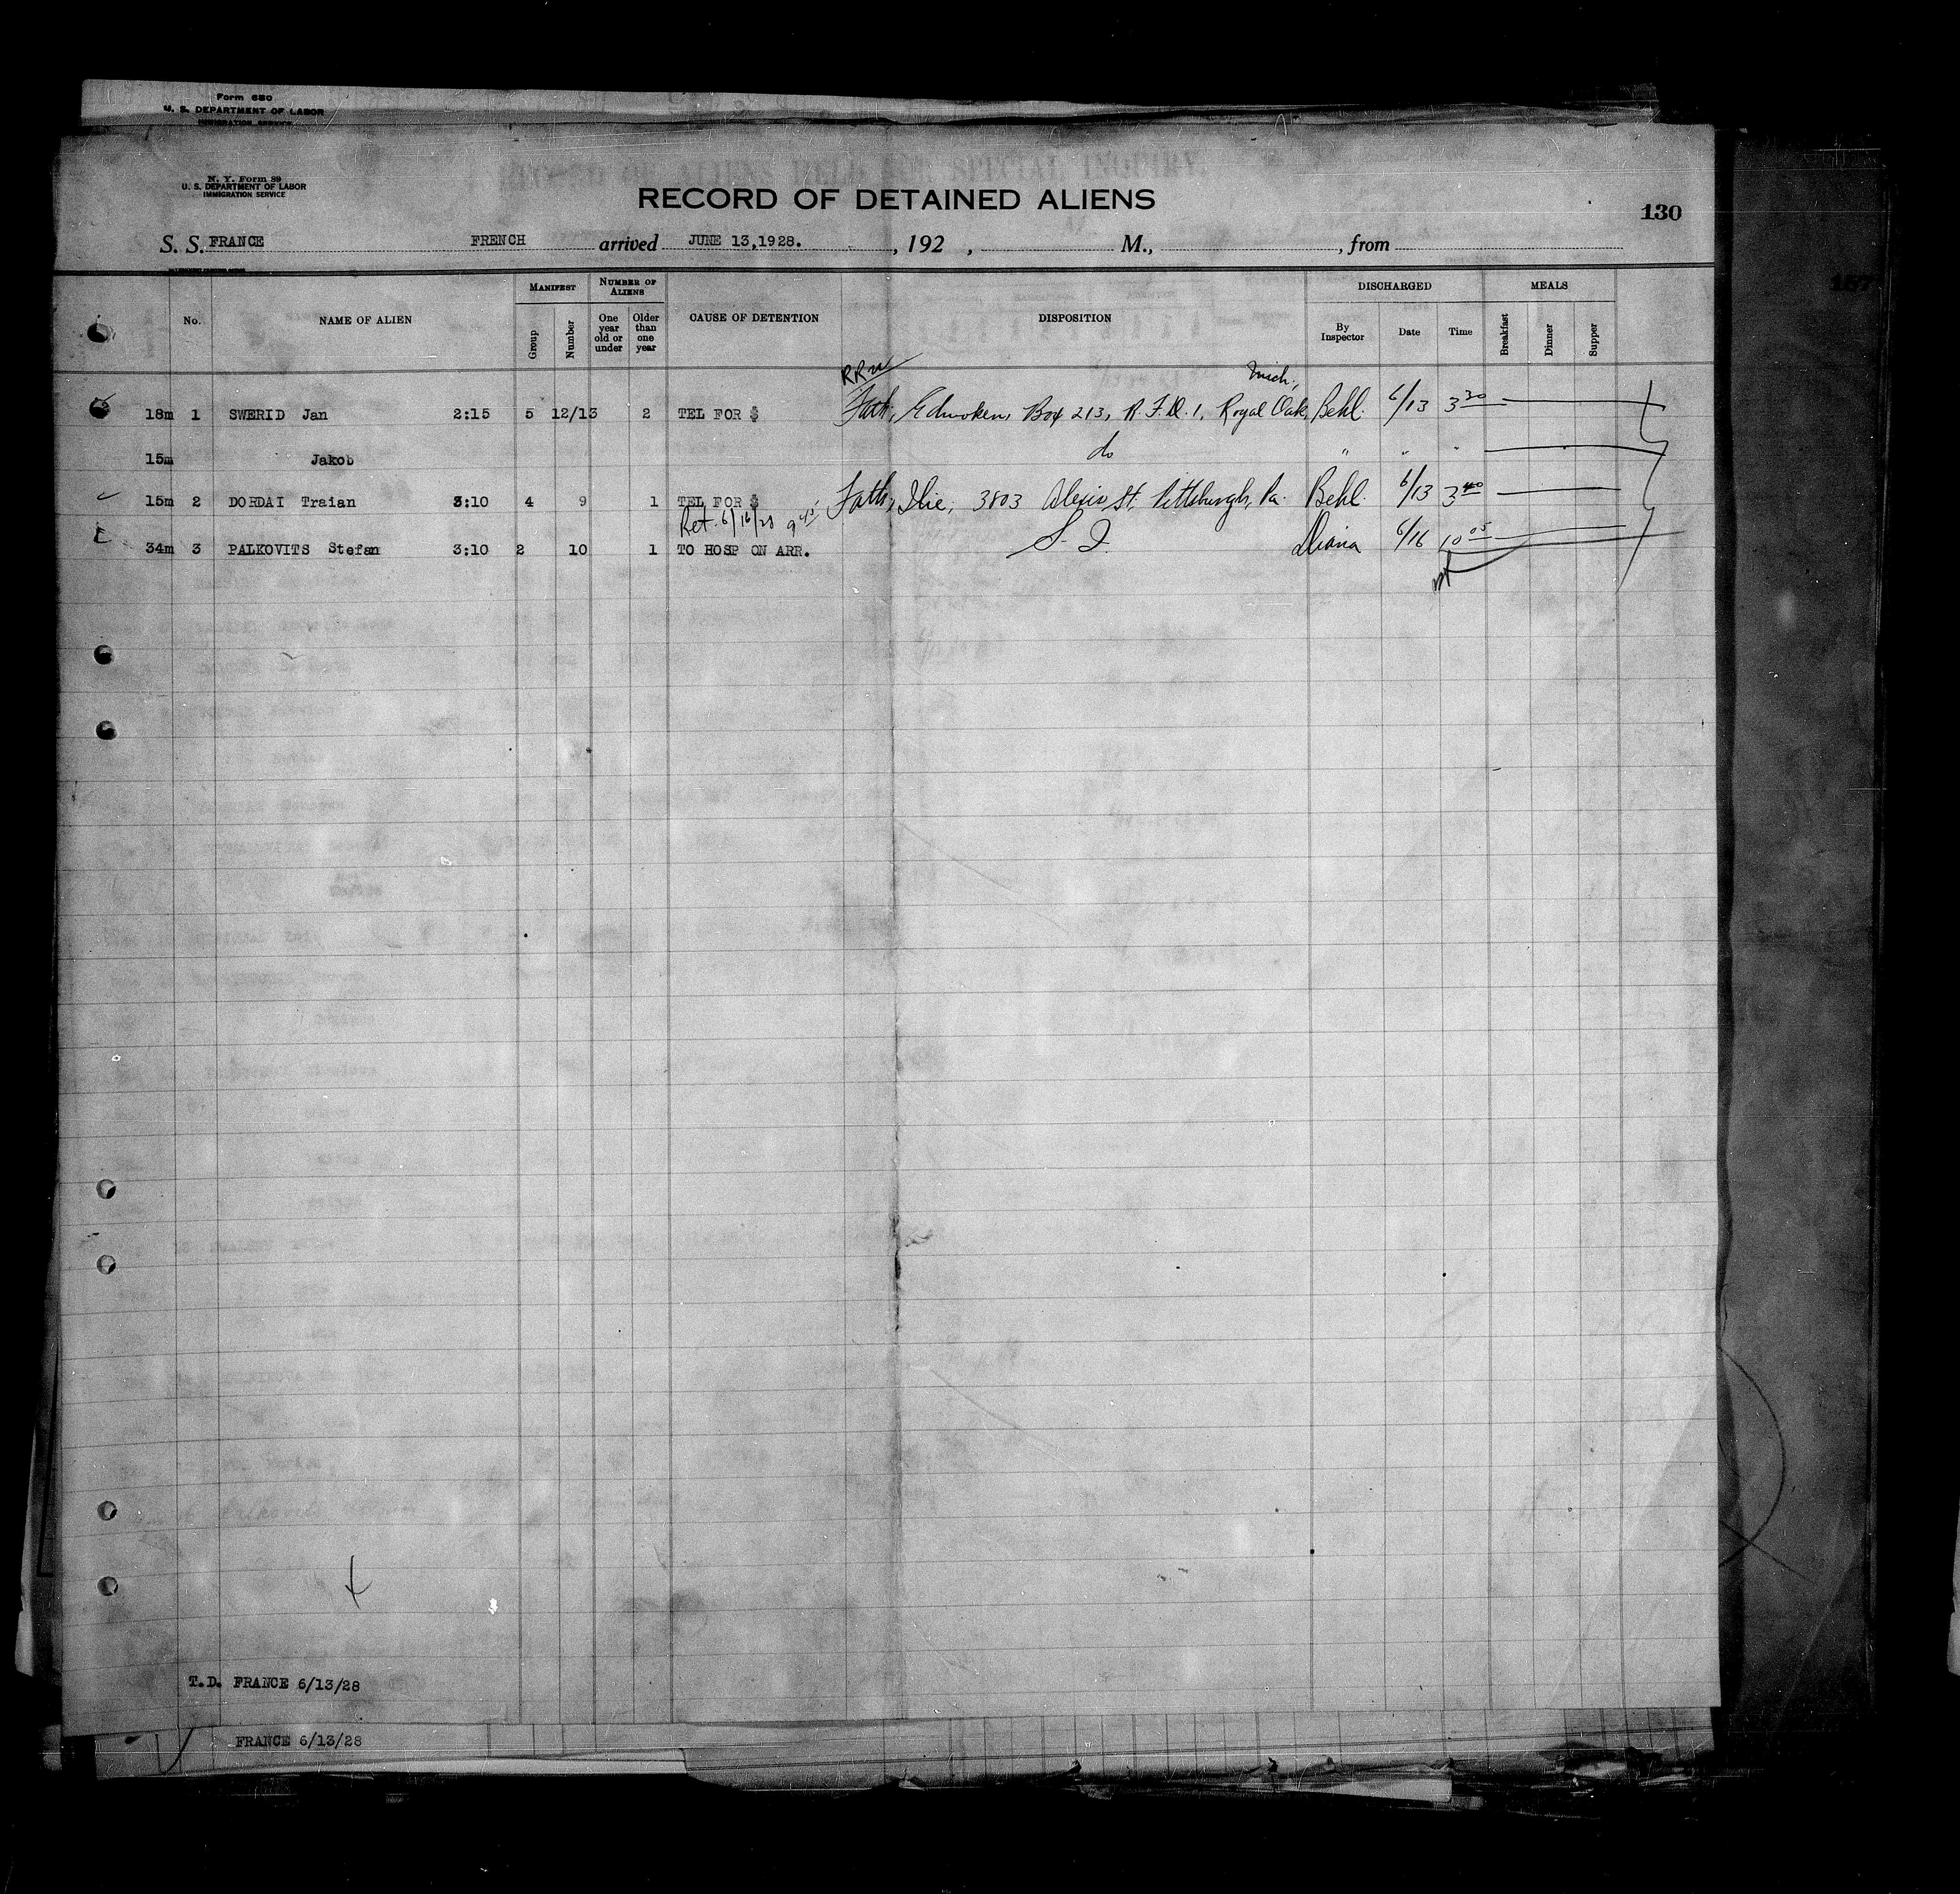 Form 680
U. S. DEPARTMENT OF LABOR
IMMIGRATION SERVICE
N. Y. Form 89
U. S. DEPARTMENT OF LABOR
IMMIGRATION SERVICE
RECORD OF ALIENS HELD FOR SPECIAL INQUIRY.
RECORD OF DETAINED ALIENS
130
S. S. FRANCE FRENCH arrived JUNE 13,1928. , 192 , M., , from
157
No. NAME OF ALIEN MANIFEST Group Number NUMBER OF ALIENS One year old or under Older than one year CAUSE OF DETENTION DISPOSITION DISCHARGED By Inspector Date Time MEALS Breakfast Dinner Supper
Mich,
18m 1 SWERID Jan 2:15 5 12/13 2 TEL FOR $ Fath, Box 213, R.F.D. 1, Royal Oak, Behl. 6/13 3 30
15m Jakob do " " "
15m 2 DORDAI Traian 3:10 4 9 1 TEL FOR $ Fath, Ilie, 3803 Alexis St. Pittsburgh, Pa. Behl. 6/13 3 40
Ret. 6/16/28 9 45
34m 3 PALKOVITS Stefan 3:10 2 10 1 TO HOSP ON ARR. S. I. Diana 6/16 10 05
T.D. FRANCE 6/13/28
FRANCE 6/13/28